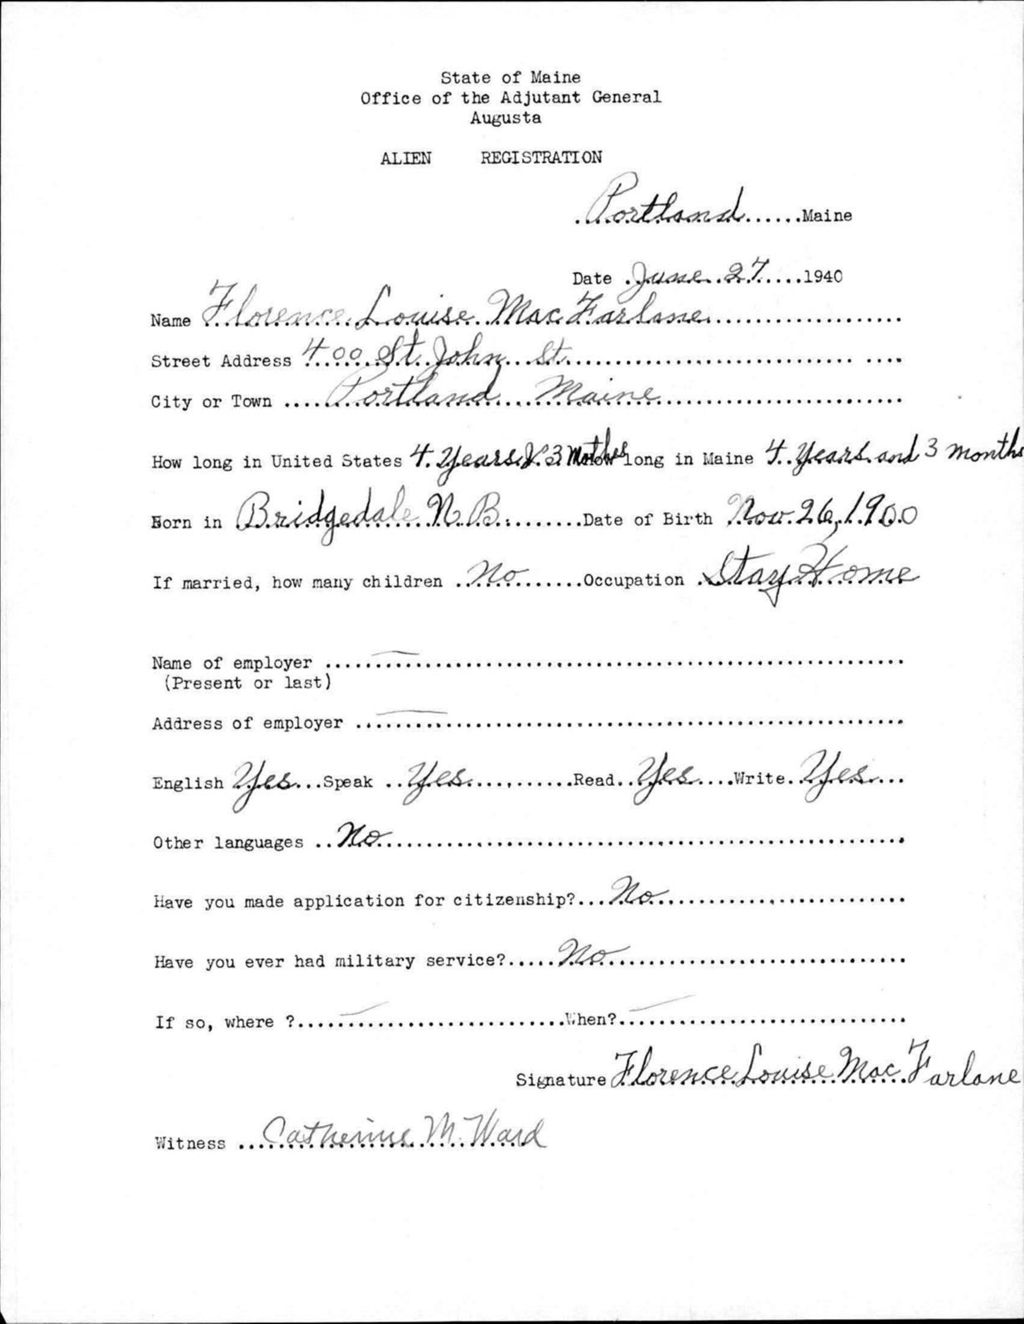 State of Maine
Office of the Adjutant General
Augusta
ALIEN REGISTRATION
Portland Maine
Date June 27 1940
Name Florence Louise Mac Farlane
Street Address 400 St. John St.
City or Town Portland Maine
How long in United States 4 Years & 3 Months How long in Maine 4 Years and 3 months
Born in Bridgedale N.B. Date of Birth Nov. 26, 1900
If married, how many children No Occupation Stay Home
Name of employer
(Present or last)
Address of employer
English Yes Speak Yes Read Yes Write Yes
Other languages No
Have you made application for citizenship? No
Have you ever had military service? No
If so, where ? When?
Signature Florence Louise Mac Farlane
Witness Catherine M. Ward